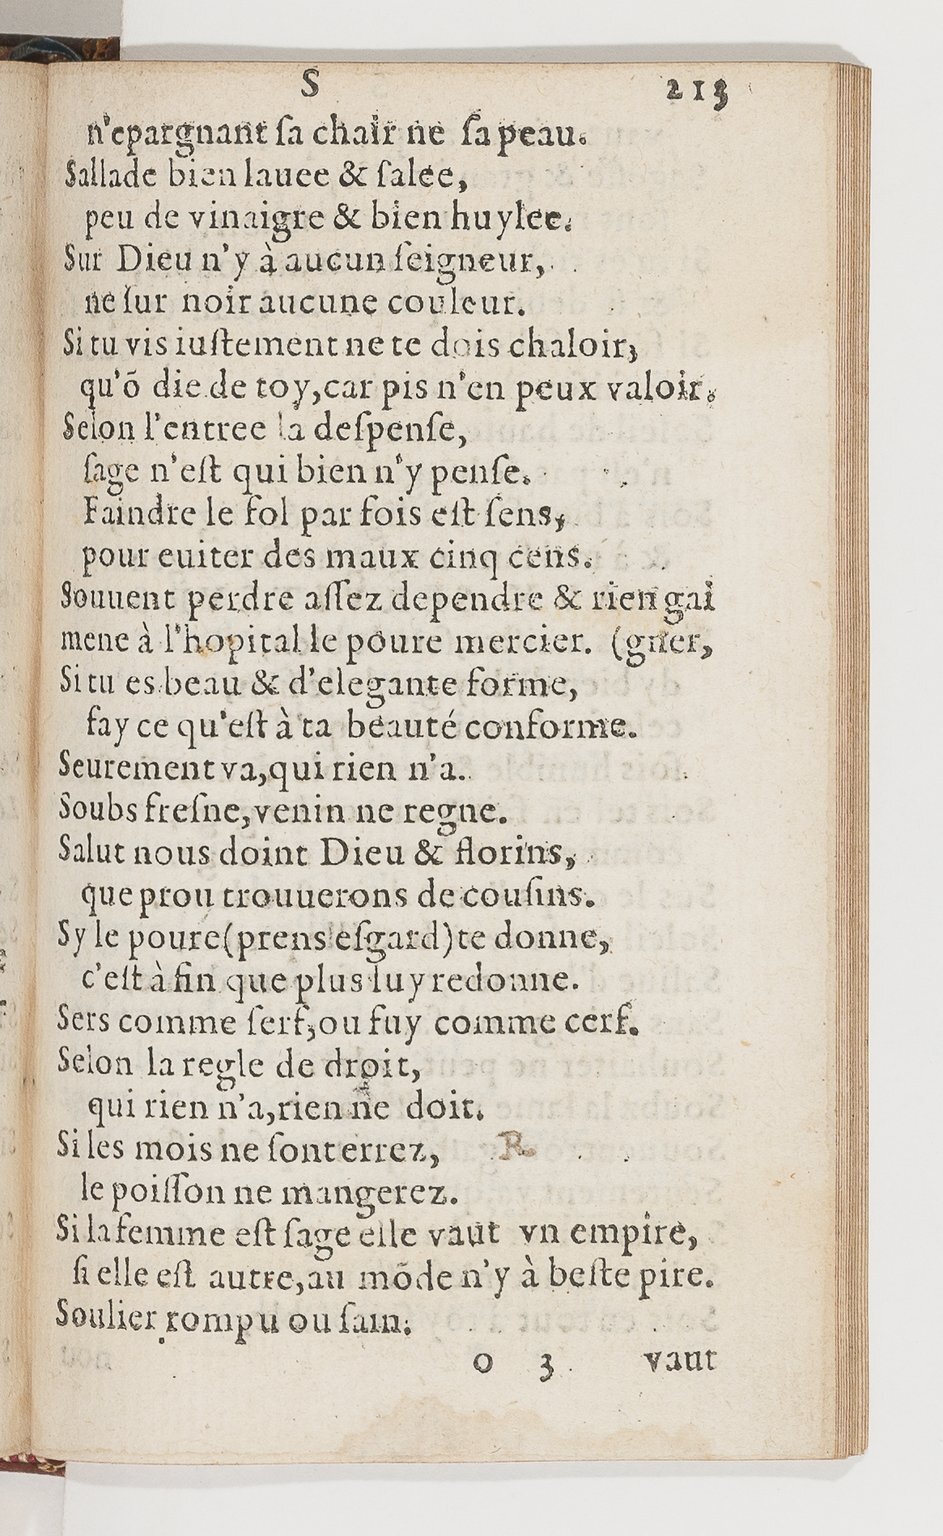 S 213
n'epargnant ſa chair ne ſa peau.
Sallade bien lauee & ſalee,
peu de vinaigre & bien huylee.
Sur Dieu n'y à aucun ſeigneur,
ne ſur noir aucune couleur.
Si tu vis iuſtement ne te dois chaloir,
qu'õ die de toy,car pis n'en peux valoir.
Selon l'entree la deſpenſe,
ſage n'eſt qui bien n'y penſe.
Faindre le fol par fois eſt ſens,
pour euiter des maux cinq cens.
Souuent perdre aſſez dependre & rien gai
mene à l'hopital le poure mercier. (gner,
Si tu es beau & d'elegante forme,
fay ce qu'eſt à ta beauté conforme.
Seurement va,qui rien n'a.
Soubs freſne,venin ne regne.
Salut nous doint Dieu & florins,
que prou trouuerons de couſins.
Sy le poure(prens eſgard)te donne,
c'eſt à fin que plus luy redonne.
Sers comme ſerf,ou fuy comme cerf.
Selon la regle de droit,
qui rien n'a,rien ne doit.
Si les mois ne ſont errez, R.
le poiſſon ne mangerez.
Si la femme eſt ſage elle vaut vn empire,
ſi elle eſt autre,au mõde n'y à beſte pire.
Soulier rompu ou ſain.
o 3 vaut